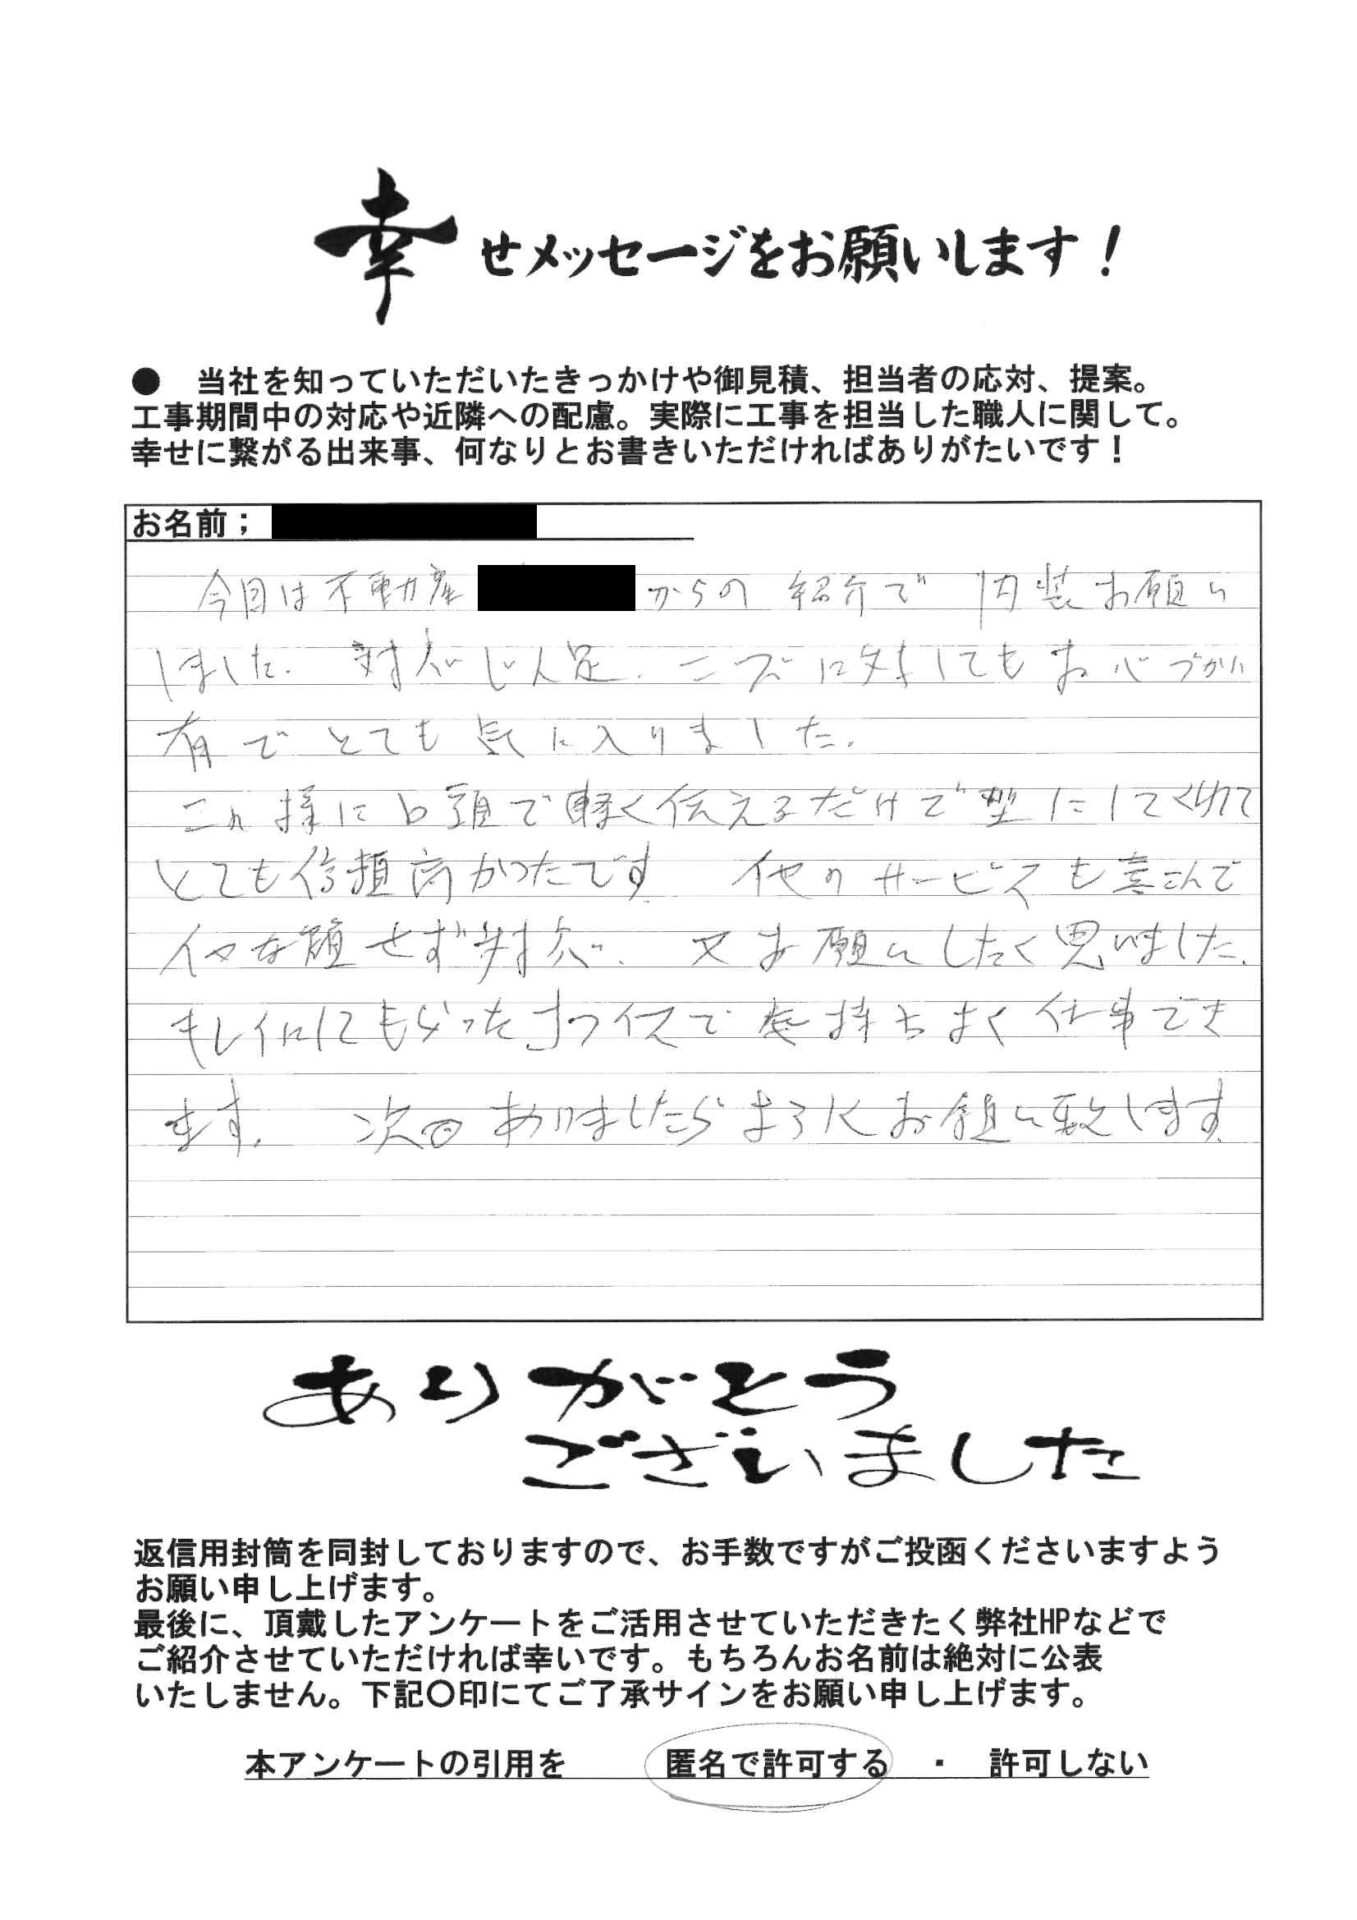 幸せメッセージをお願いします！
● 当社を知っていただいたきっかけや御見積、担当者の応対、提案。
工事期間中の対応や近隣への配慮。実際に工事を担当した職人に関して。
幸せに繋がる出来事、何なりとお書きいただければありがたいです！
お名前；
今回は不動産 からの紹介で内装お願い
しました。対応じん足、ニーズに対してもお心づかい
有でとても気に入りました。
これ様に口頭で軽く伝えるだけで型にしてくれて
とても信頼高かったです 他のサービスも喜こんで
イヤな顔せず対応、又お願いしたく思いました。
キレイにしてもらったオフイスで気持ちよく仕事でき
ます。 次回ありましたらよろしくお願い致します
ありがとう
ございました
返信用封筒を同封しておりますので、お手数ですがご投函くださいますよう
お願い申し上げます。
最後に、頂戴したアンケートをご活用させていただきたく弊社HPなどで
ご紹介させていただければ幸いです。もちろんお名前は絶対に公表
いたしません。下記〇印にてご了承サインをお願い申し上げます。
本アンケートの引用を 匿名で許可する ・ 許可しない